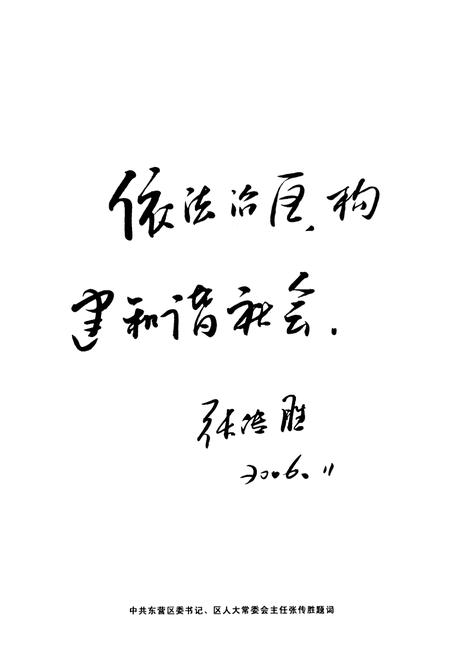 依法治区,构
建和谐社会.
张传胜
2006.11
中共东营区委书记、区人大常委会主任张传胜题词